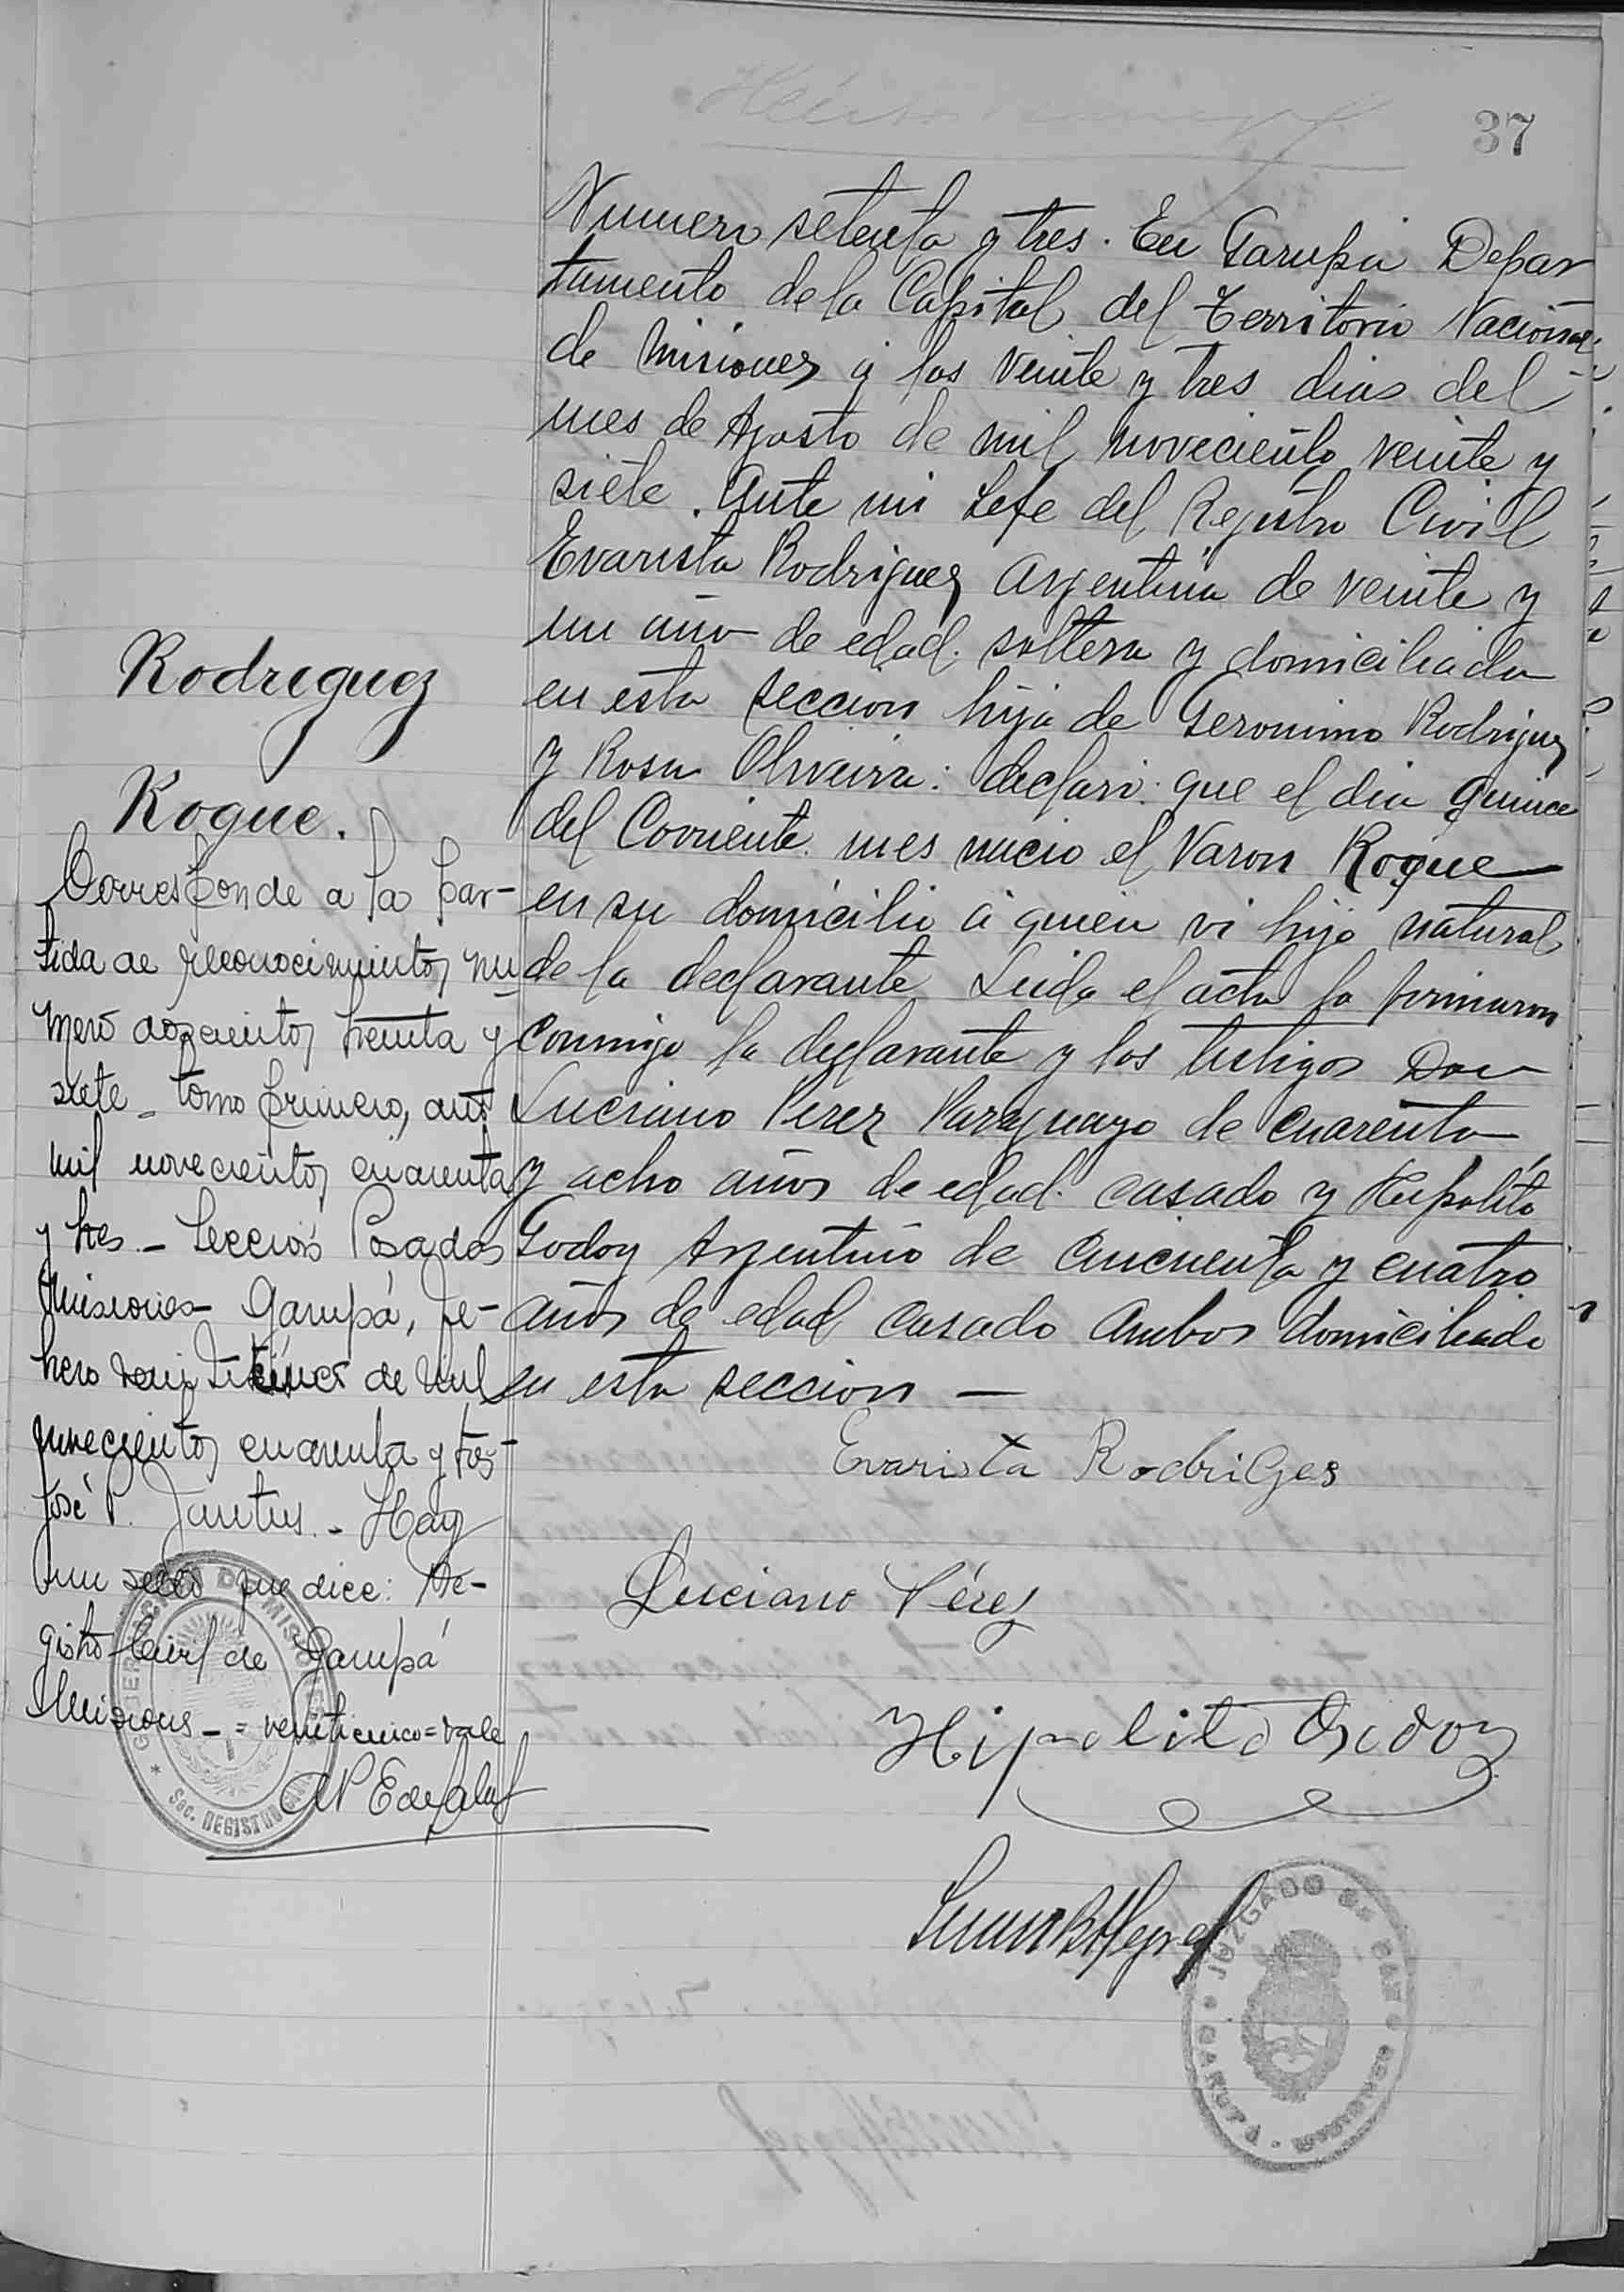 37
Numero setenta y tres. En Garupá Depar
tamento de la Capital del Territorio Nacional
de Misiones á los veinte y tres dias del
mes de Agosto de mil noveciento veinte y
siete. Ante mi Jefe del Registro Civil
Evarista Rodriguez Argentina de veinte y
un año de edad. soltera y domiciliada
en esta seccion hija de Geronimo Rodriguez
y Rosa Oliveira: declaró: que el dia quince
del Corriente mes nacio el Varon Roque
en su domicilio á quien vi hijo natural
de la declarante Leida el acta la firmaron
conmigo la declarante y los testigos Don
Luciano Perez Paraguayo de cuarenta
y acho años de edad. casado y Hipolito
Godoy Argentino de cincuenta y cuatro
años de edad casado Ambos domiciliado
en esta seccion —
Evarista RodriGes
Luciano Pérez
Hipolito Godoy
JUZGADO DE PAZ
GARUPA - MISIONES
Rodriguez
Roque.
Corresponde a la par-
tida de reconocimiento nu
mero doscientos treinta y
siete - tomo primero, año
mil novecientos cuarenta
y tres - Sección Posadas
Misiones - Garupá, Fe-
brero de mil
novecientos cuarenta y tres -
José P. - Hay
un sello que dice: Re-
gistro Civil de Garupá
Misiones - = veinticinco = vale
GOBERNACION DE MISIONES
Sec. REGISTRO CIVIL